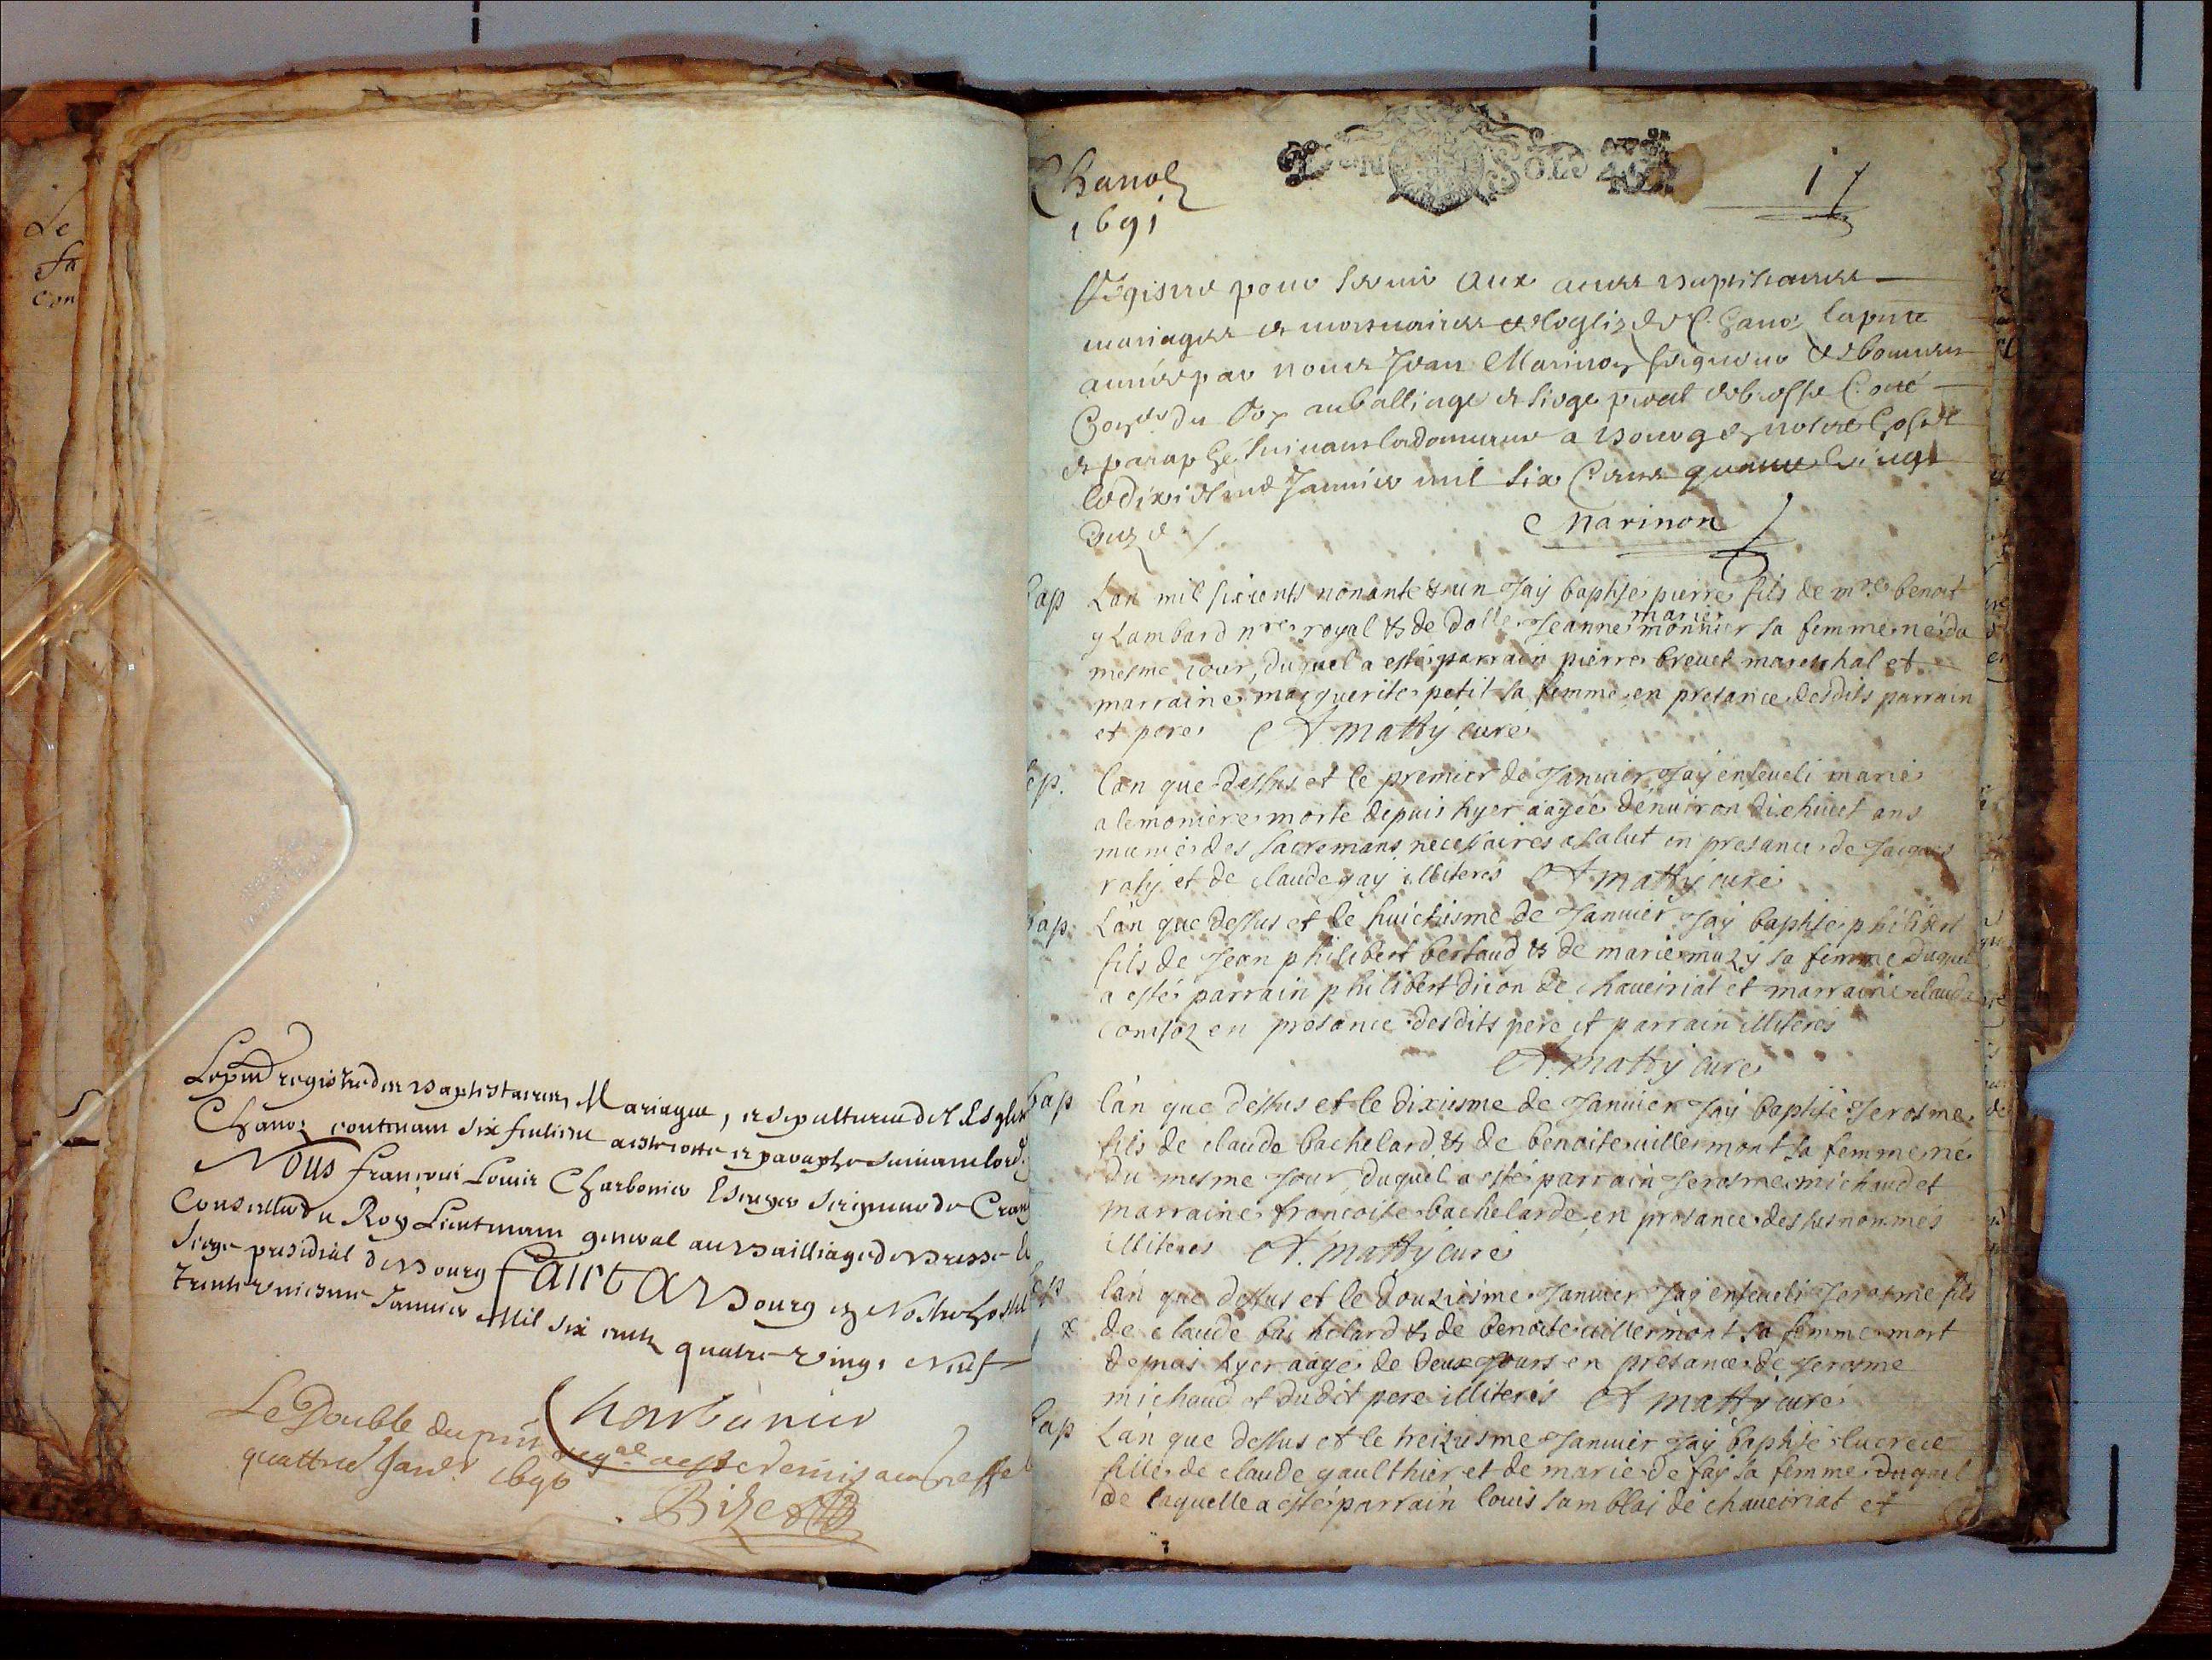 Le
fa
con
Le pnt registre des Baptistaires, Mariages, et sepultures de l'Esglise
Chanoz contenant six feulietz a esté cotté et paraphé suivant lord.
Nous françois Louis Charbonier Escuyer Seigneur de Crang
Conseiller du Roy Lieutenant general au Bailliage de Bresse et
Siege presidial de Bourg fait a Bourg en Nostre hostel
trente Janvier Mil six cents quatre vingt Neuf
Charbonier
Le Double du pnt a esté remis au Greffe
quattrie Janr. 1690
Chanoz
1691
UN SOLS
1
Registre pour servir aux actes baptistaires
mariages et mortuaires de l'eglize de Chanoz la pnte
année par nous Jean Marinon seigneur de
Conser du Roy au balliage et siege pnal de bresse Cotté
et paraphé suivant lordonnance a Bourg en nostre hostel
le Janvier mil six Cents quattre vingt
unze
Marinon
Bap Lan mil sixcents nonante & un Jay baptisé pierre fils de mre benoit
gLambard nre royal & de dolle Jeanne marie monnier sa femme né du
mesme jour, duquel a esté parrain pierre brevet mareschal et
marraine marguerite petit sa femme en presance desdits parrain
et pere A. Matty curé
Sep. lan que dessus et le premier de Janvier Jay enseveli marie
alemoniere morte depuis hyer aagée denviron dixhuict ans
munie des sacremans necessaires a salut en presance de Jacques
rasy et de claude gay illiteres A. Matty curé
bap. Lan que dessus et le huictiesme de Janvier Jay baptisé philibert
fils de Jean philibert bertaud & de marie muzy sa femme duquel
a esté parrain philibert dion de chaveiriat et marraine claudа
contoz en presance desdits pere et parrain illiteres
A. Matty curé
bap lan que dessus et le dixiesme de Janvier Jay baptisé Jerosme
fils de claude bachelard & de benoite villermont sa femme né
du mesme Jour, duquel a esté parrain Jerosme michaud et
marraine francoise bachelarde en presance des susnommés
illiteres A. Matty curé
Sep lan que dessus et le douziesme Janvier Jay enseveli Jerosme fils
de claude bachelard & de benoite villermont sa femme mort
depuis hyer aagé de deux Jours en presance de Jerosme
michaud et dudit pere illiteres A Matty curé
bap Lan que dessus et le treiziesme Janvier Jay baptisé lucrece
fille de claude gaulthier et de marie de fay sa femme duquel
de laquelle a esté parrain louis samblai de chaveiriat et